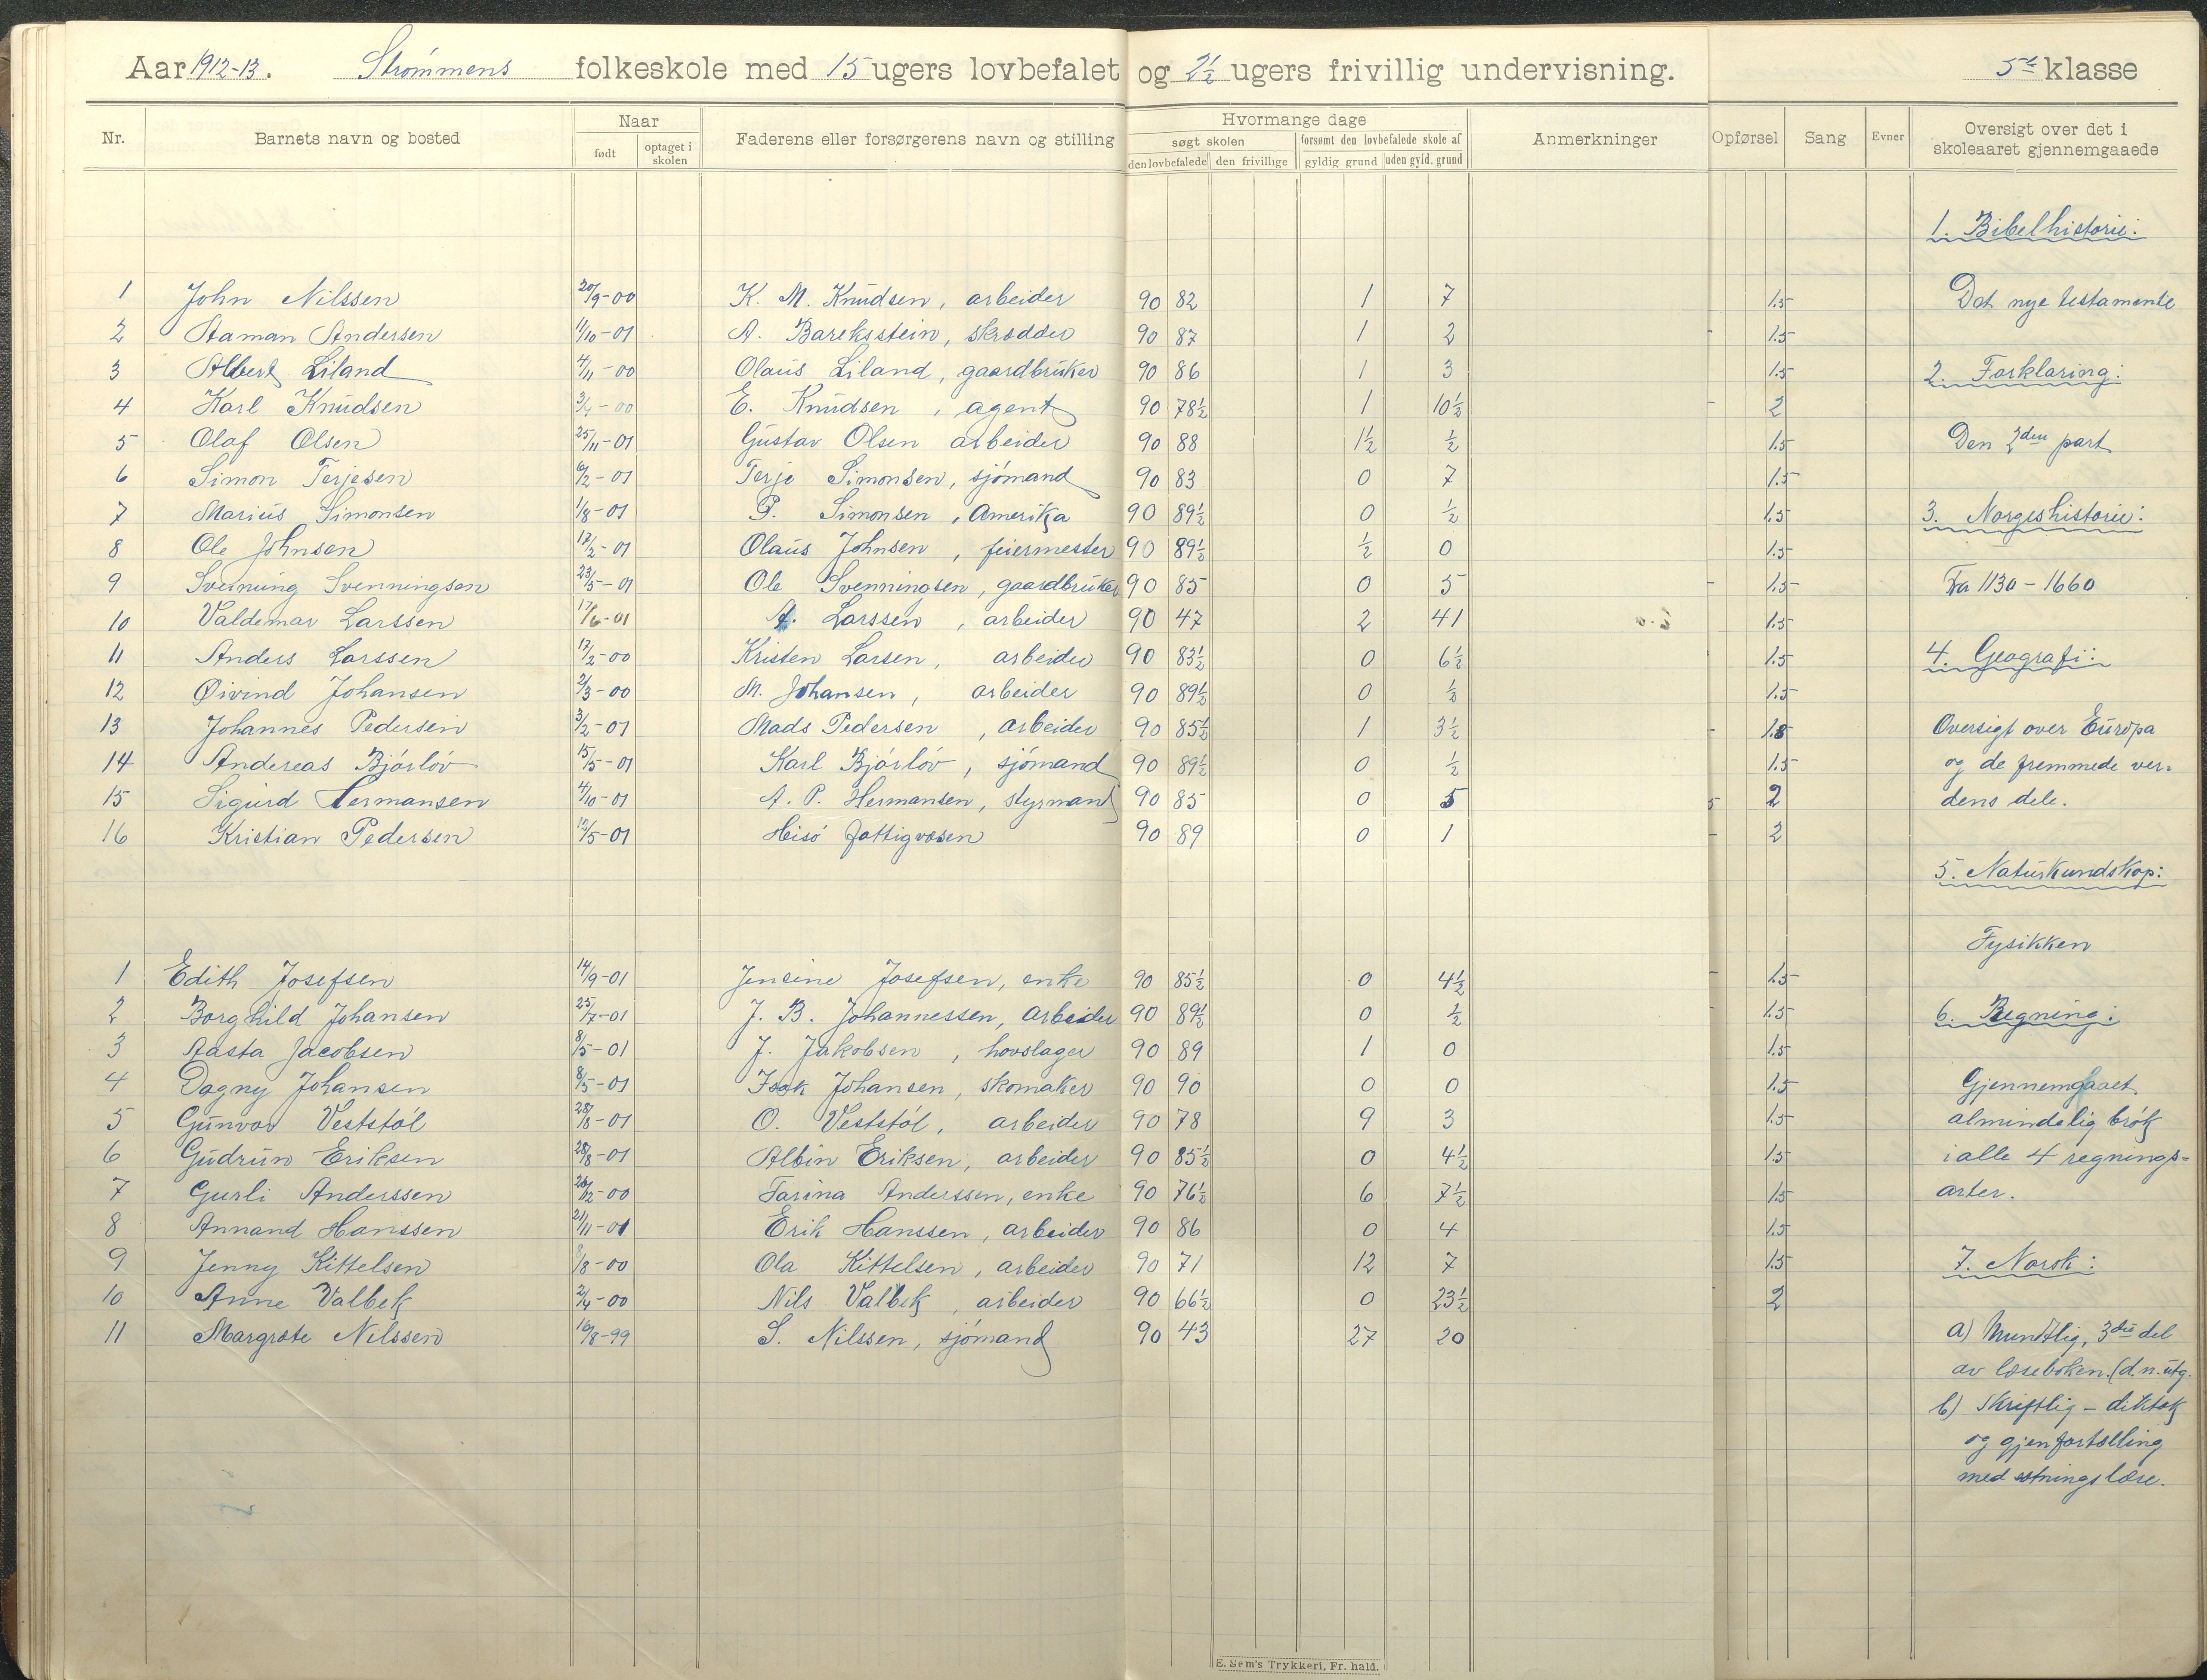 Aar 1912-13. Strømmens folkeskole med 15 ugers lovbefalet og 2½ ugers frivillig undervisning. 5te klasse
Nr. Barnets navn og bosted Naar født optaget i skolen Faderens eller forsørgerens navn og stilling Hvormange dage søgt skolen den lovbefalede den frivillige forsømt den lovbefalede skole af gyldig grund uden gyld. grund Anmerkninger Opførsel Sang Evner Oversigt over det i skoleaaret gjennemgaaede
1. Bibelhistorie:
1 John Nilssen 20/9-00 K. M. Knudsen, arbeider 90 82 1 7 1.5 Det nye testamente
2 Aaman Andersen 11/10-01 A. Bareksstein, skrædder 90 87 1 2 1.5
3 Albert Liland 4/11-00 Olaus Liland, gaardbruker 90 86 1 3 1.5 2. Forklaring:
4 Karl Knudsen 3/4-00 E. Knudsen, agent 90 78½ 1 10½ 2
5 Olaf Olsen 25/11-01 Gustav Olsen arbeider 90 88 1½ ½ 1.5 Den 2den part
6 Simon Terjesen 6/2-01 Terje Simonsen, sjømand 90 83 0 7 1.5
7 Marius Simonsen 1/8-01 P. Simonsen, Amerika 90 89½ 0 ½ 1.5 3. Norgeshistorie:
8 Ole Johnsen 17/2-01 Olaus Johnsen, feiermester 90 89½ ½ 0 1.5
9 Sveinung Svenningsen 23/5-01 Ole Svenningsen, gaardbruker 90 85 0 5 1.5 Fra 1130-1660
10 Valdemar Larssen 17/6-01 A. Larssen, arbeider 90 47 2 41 1.5
11 Anders Larssen 17/2-00 Kristen Larsen, arbeider 90 83½ 0 6½ 1.5 4. Geografi:
12 Øivind Johansen 2/3-00 M. Johansen, arbeider 90 89½ 0 ½ 1.5
13 Johannes Pedersen 3/2-01 Mads Pedersen, arbeider 90 85½ 1 3½ 1.5 Oversigt over Europa
14 Andereas Bjørløv 15/5-01 Karl Bjørløv, sjømand 90 89½ 0 ½ 1.5 og de fremmede ver-
15 Sigurd Hermansen 4/10-01 A. P. Hermansen, styrmand 90 85 0 5 2 dens dele.
16 Kristian Pedersen 12/5-01 Hisø fattigvæsen 90 89 0 1 2
5. Naturkundskap:
Fysikken
1 Edith Josefsen 14/9-01 Jensine Josefsen, enke 90 85½ 0 4½ 1.5
2 Borghild Johansen 25/7-01 J. B. Johannessen, arbeider 90 89½ 0 ½ 1.5 6. Regning:
3 Aasta Jacobsen 8/5-01 J. Jakobsen, hovslager 90 89 1 0 1.5
4 Dagny Johansen 8/5-01 Isak Johansen, skomaker 90 90 0 0 1.5 Gjennemgaaet
5 Gunvor Veststøl 28/8-01 O. Veststøl, arbeider 90 78 9 3 1.5 almindelig brøk
6 Gudrun Eriksen 28/8-01 Albin Eriksen, arbeider 90 85½ 0 4½ 1.5 i alle 4 regnings-
7 Gurli Anderssen 26/12-00 Tarina Anderssen, enke 90 76½ 6 7½ 1.5 arter.
8 Annand Hanssen 21/11-01 Erik Hanssen, arbeider 90 86 0 4 1.5
9 Jenny Kittelsen 8/8-00 Ola Kittelsen, arbeider 90 71 12 7 1.5 7. Norsk:
10 Anne Valbek 2/4-00 Nils Valbek, arbeider 90 66½ 0 23½ 2
11 Margrete Nilssen 16/8-99 S. Nilssen, sjømand 90 43 27 20 a) Mundtlig, 3die del
av læseboken. (d. n. utg.
b) Skriftlig - diktat
og gjenfortælling
med sætningslære.
E. Sem's Trykkeri, Fr. hald.